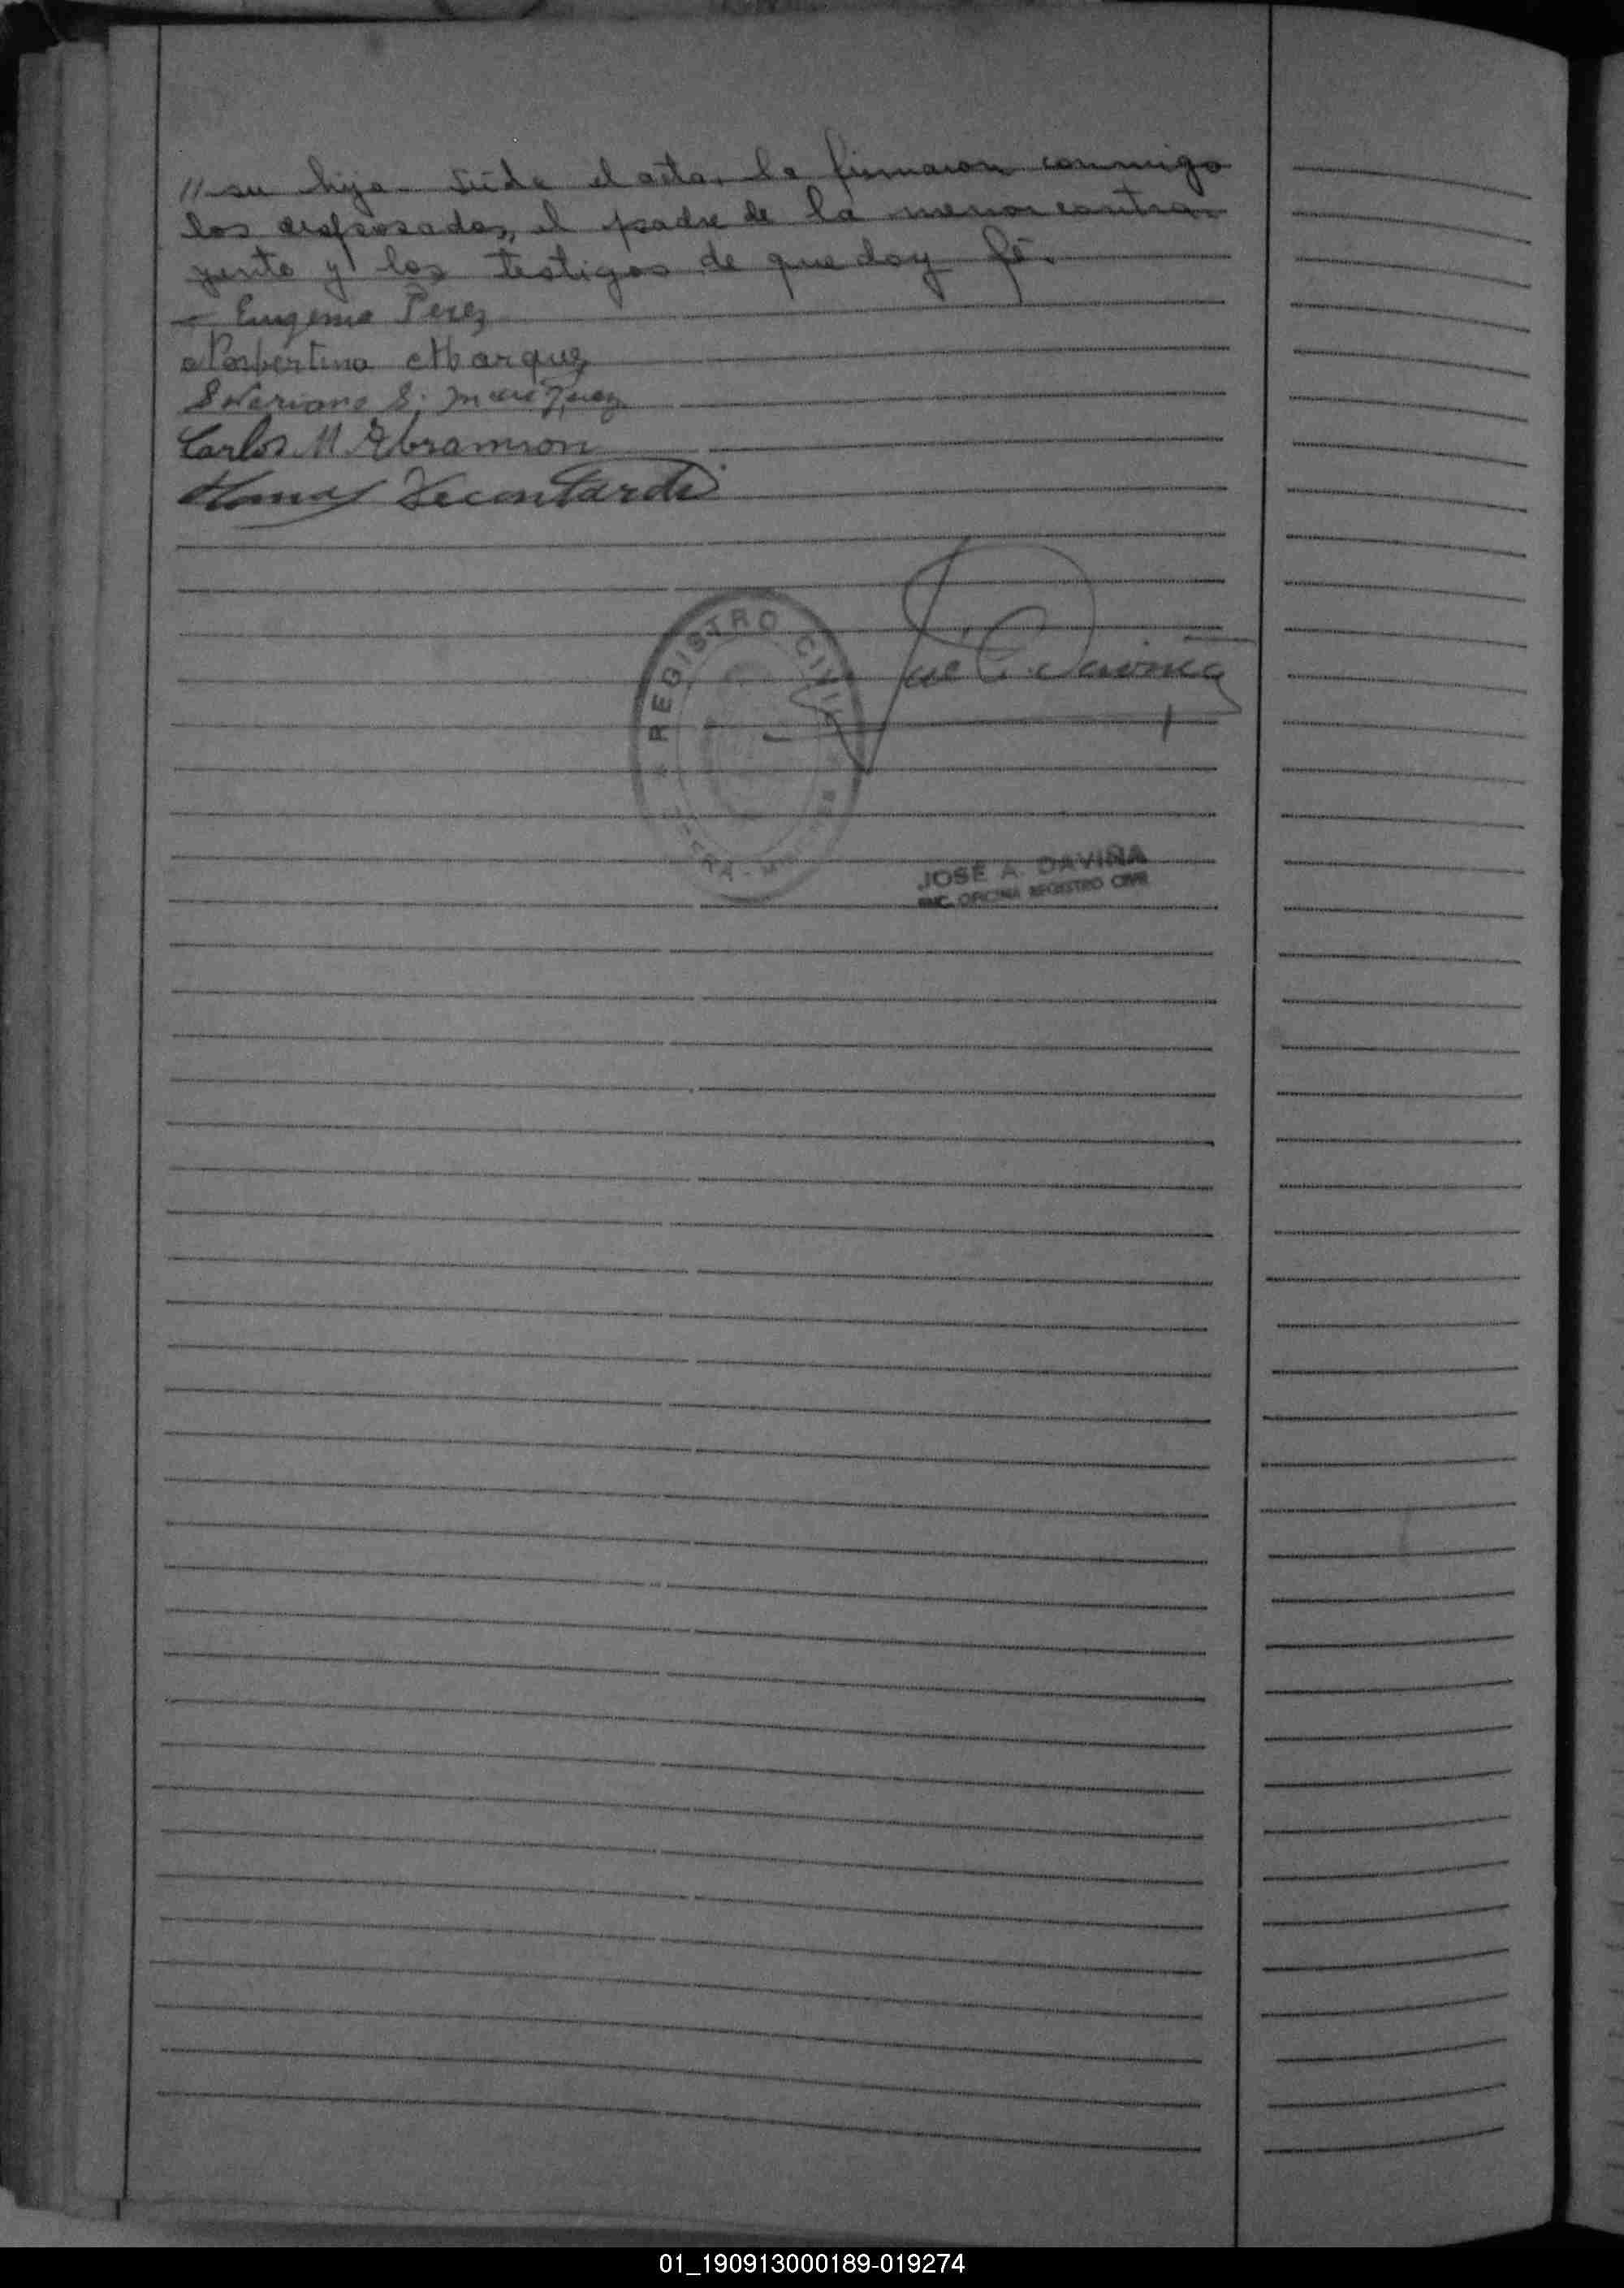 // su hija. Leída el acta, la firmaron conmigo
los desposados, el padre de la menor contra-
yente y los testigos de que doy fé.
Eugenio Perez
Norbertina Marquez
S. Marquez
Carlos M Abramson
REGISTRO CIVIL
JOSÉ A. DAVIÑA
ENC. OFICINA REGISTRO CIVIL
01_190913000189-019274